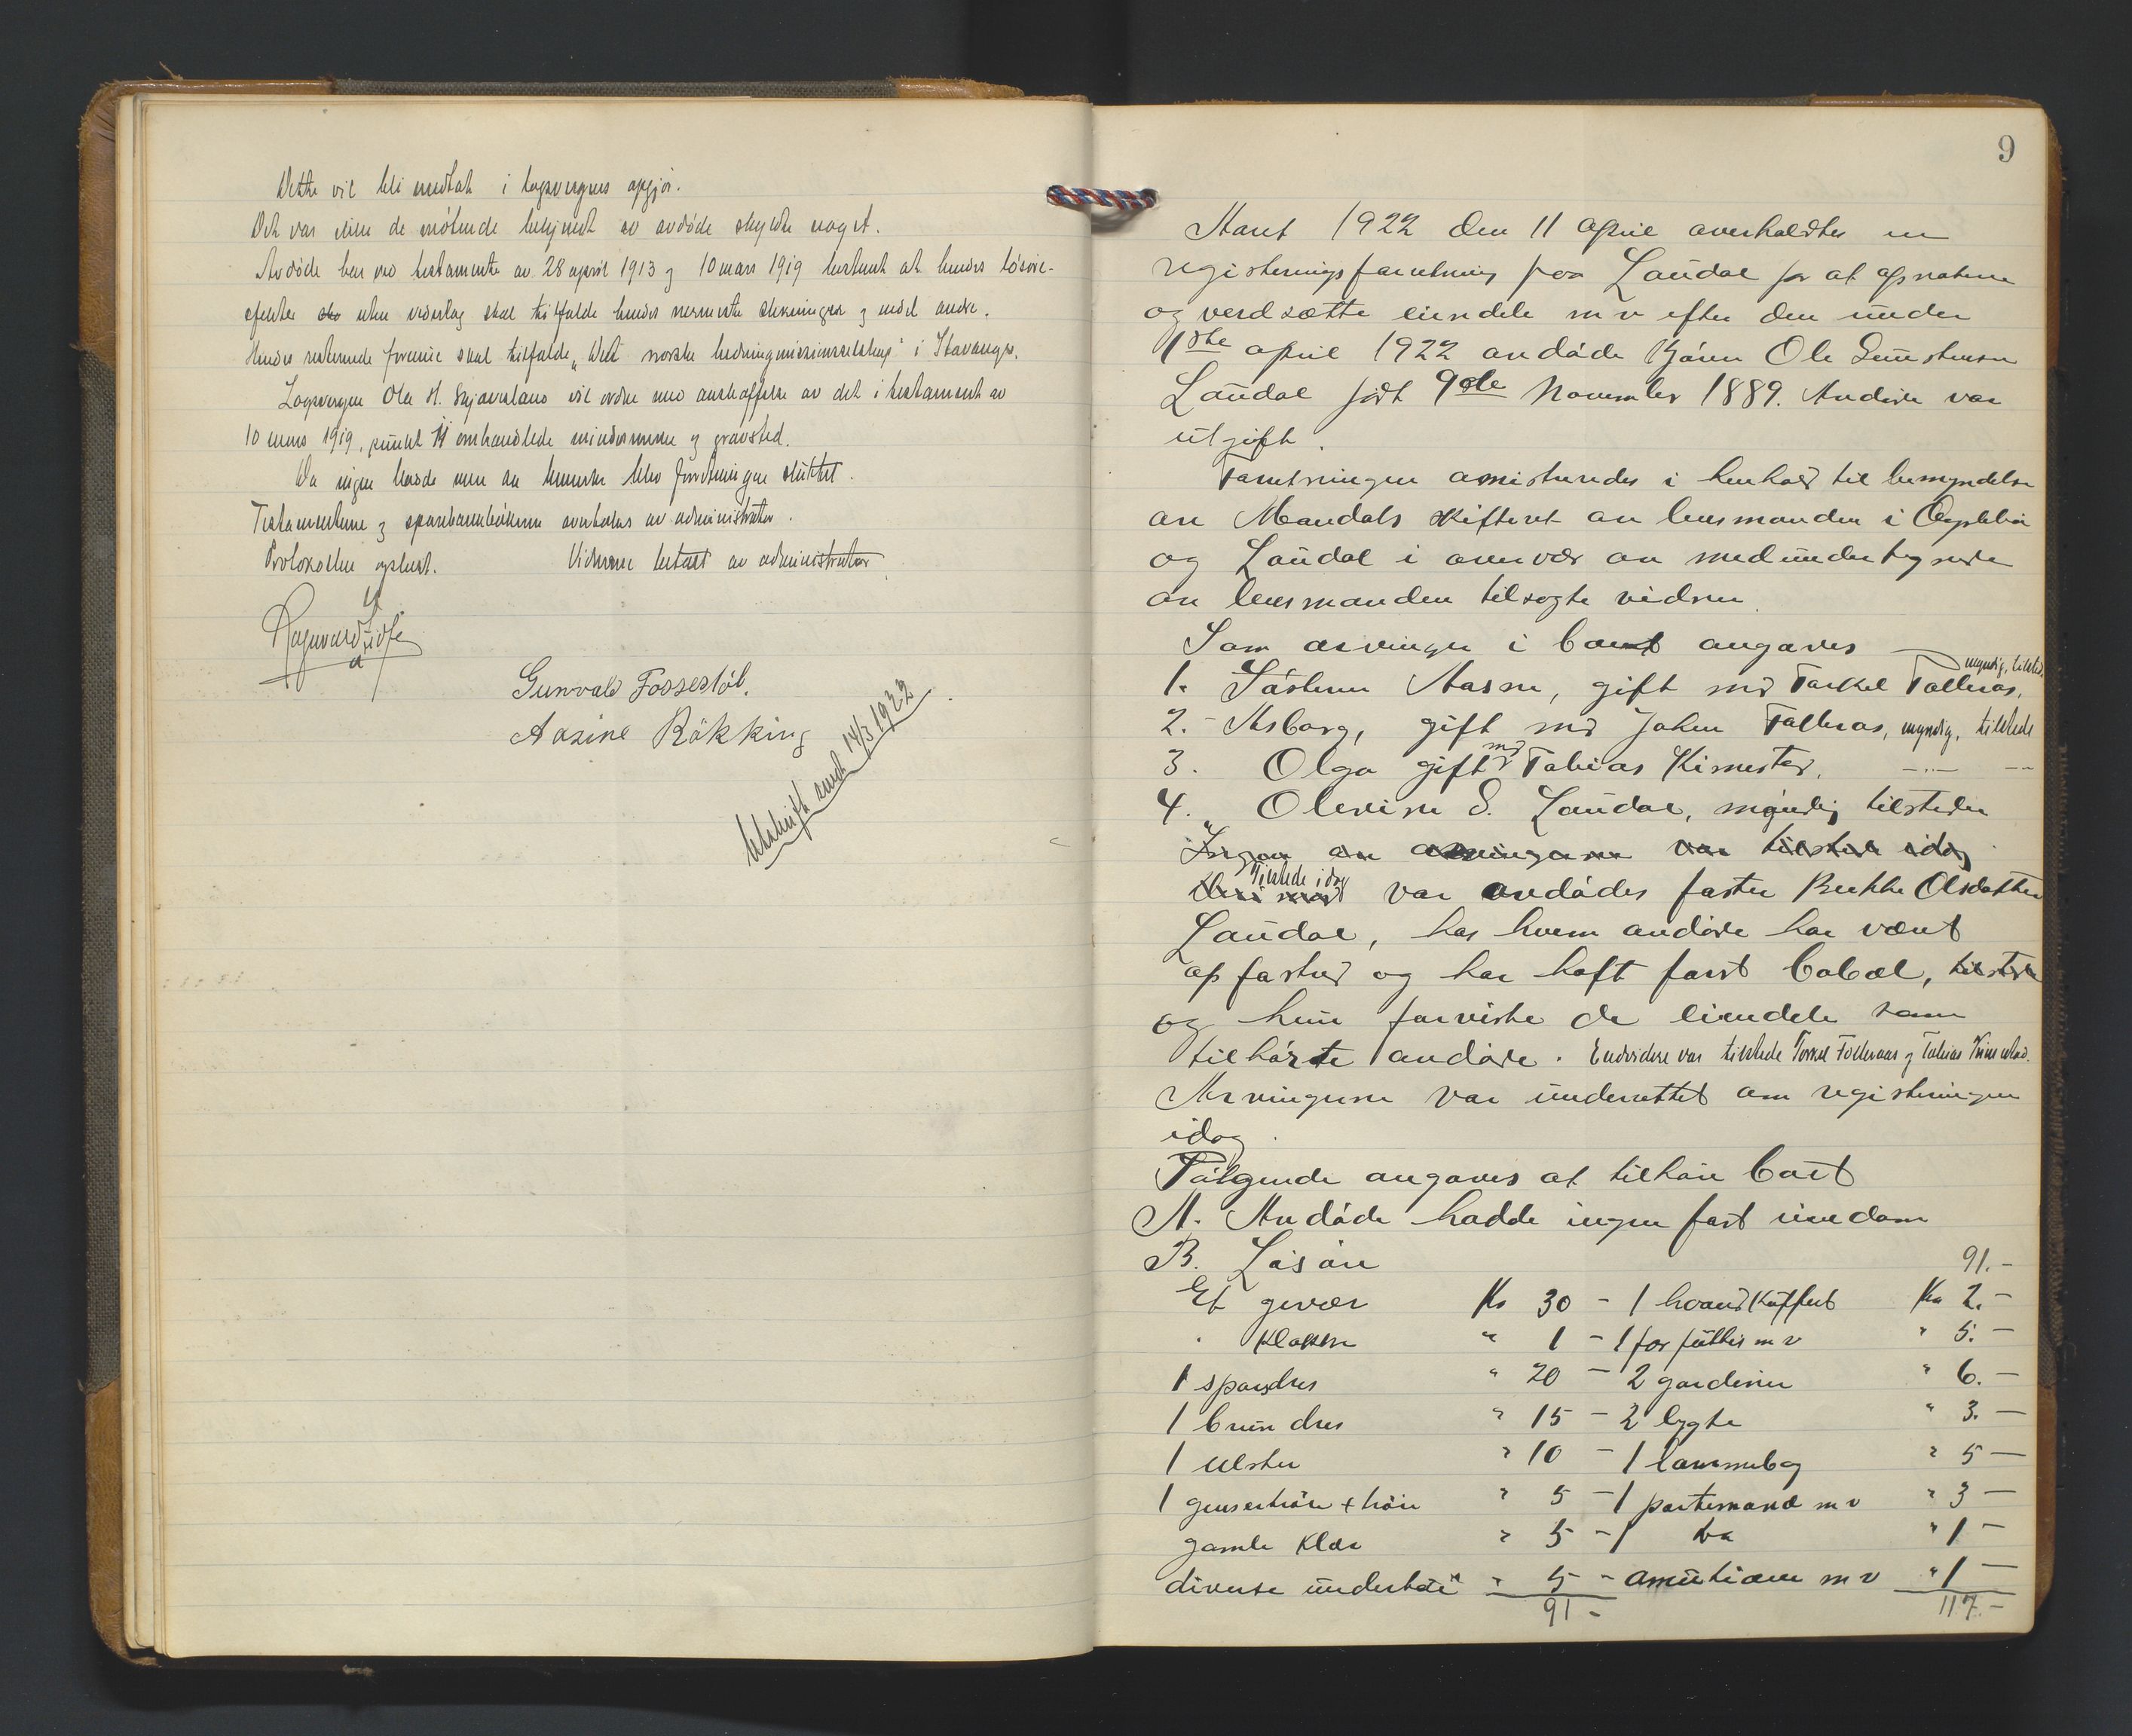 Dette vil bli medtat i lagvergens opgjør.
Det var ikke de møtende bekjendt at avdøde skyldte noget.
Avdøde har ved testamente av 28 april 1913 og 10 mars 1919 bestemt at hendes løsøre-
efekter uten vederlag skal tilfalde hendes nærmeste slektninger og andre.
Hendes resterende formue skal tilfalde „Det norske hedningmissionsselskap" i Stavanger.
Lagvergen Ola H. vil ordne med anskaffelse av det i testament av
10 mars 1919, punkt omhandlede mindesmerke og gravsted.
Da ingen hadde mere at bemerke blev forretningen sluttet.
Testamentene og sparebankbøkerne overtokes av administrator.
Protokollen oplæst. Vidnerne betalt av administrator.
Gunvald Fossestøl.
Aasine Røkking
Utskrift sendt 14/3 1922
9
Aaret 1922 den 11 april averholdtes en
registeringsforretning paa Laudal for at opnotere
og verdsætte eiendele m v efter den under
1ste april 1922 avdøde Bjørn Ole Gunstensen
Laudal født 9de November 1889. Avdøde var
ugift.
Foretningen administreredes i henhold til bemyndelse
av Mandals skifteret av lensmanden i Øyslebø
og Laudal i overvær av medundertegnede
av lensmanden tilsagte vidner
Som arvinger i boet angaves
1. Søstrene Aasne, gift med Torkel Folleraas, myndig, tilsted.
2. - Asborg, gift med Johan Folleraas, myndig, tilstede
3. Olga gift med Tobias Kimestad. -"- -"-
4. " Olevine G. Laudal, myndig tilstede
Ingen av arvingerne var tilstede idag
Tilstede idag var avdødes faster Berthe Olsdatter
Laudal, hos hvem avdøde har vært
opfostred og har hatt fast bobæl, tilstede
og hun forviste de eiendele som
tilhørte avdøde. Endvidere var tilstede Torkel Folleraas og Tobias Kimestad.
Arvingerne var underrettet om registeringen
idag.
Følgende angaves at tilhøre boet
A. Avdøde hadde ingen fast eiendom
B. Løsøre 91.-
Et gevær Kr 30 - 1 haandkuffert Kr 2.-
" klokke " 1 - 1 m v " 5.-
1 dres " 20 - 2 gardiner " 6.-
1 brun dres " 15 - 2 lygte " 3.-
1 ulster " 10 - 1 lommebog " 5 -
1 + trøie " 5 - 1 portemoné m v " 3 -
gamle klær " 5 - 1 " 1 -
diverse undertøi " 5 - amution m v " 1 -
91 - 117.-